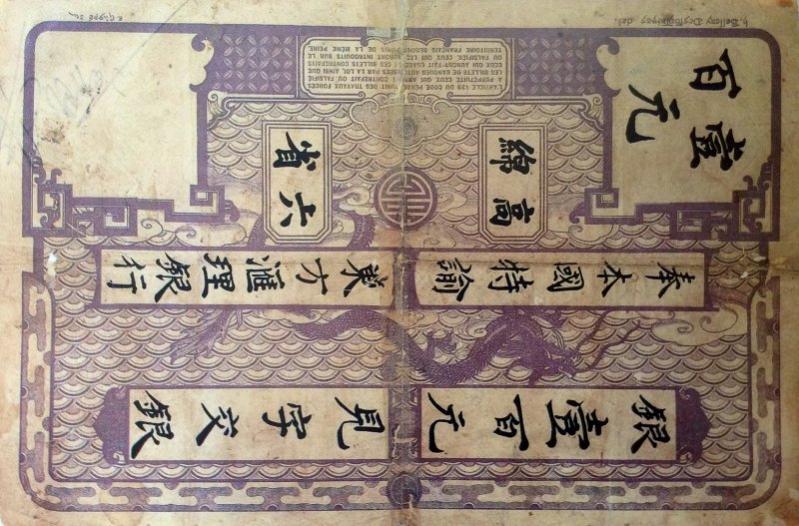 銀壹百元
見字交銀
奉本國特諭
東方匯理銀行
高綿
六省
壹百元
L'ARTICLE 139 DU CODE PÉNAL PUNIT DES TRAVAUX FORCÉS
À PERPÉTUITÉ CEUX QUI AURONT CONTREFAIT OU FALSIFIÉ
LES BILLETS DE BANQUES AUTORISÉES PAR LA LOI, AINSI QUE
CEUX QUI AURONT FAIT USAGE DE CES BILLETS CONTREFAITS
OU FALSIFIÉS. CEUX QUI LES AURONT INTRODUITS SUR LE
TERRITOIRE FRANÇAIS SERONT PUNIS DE LA MÊME PEINE.